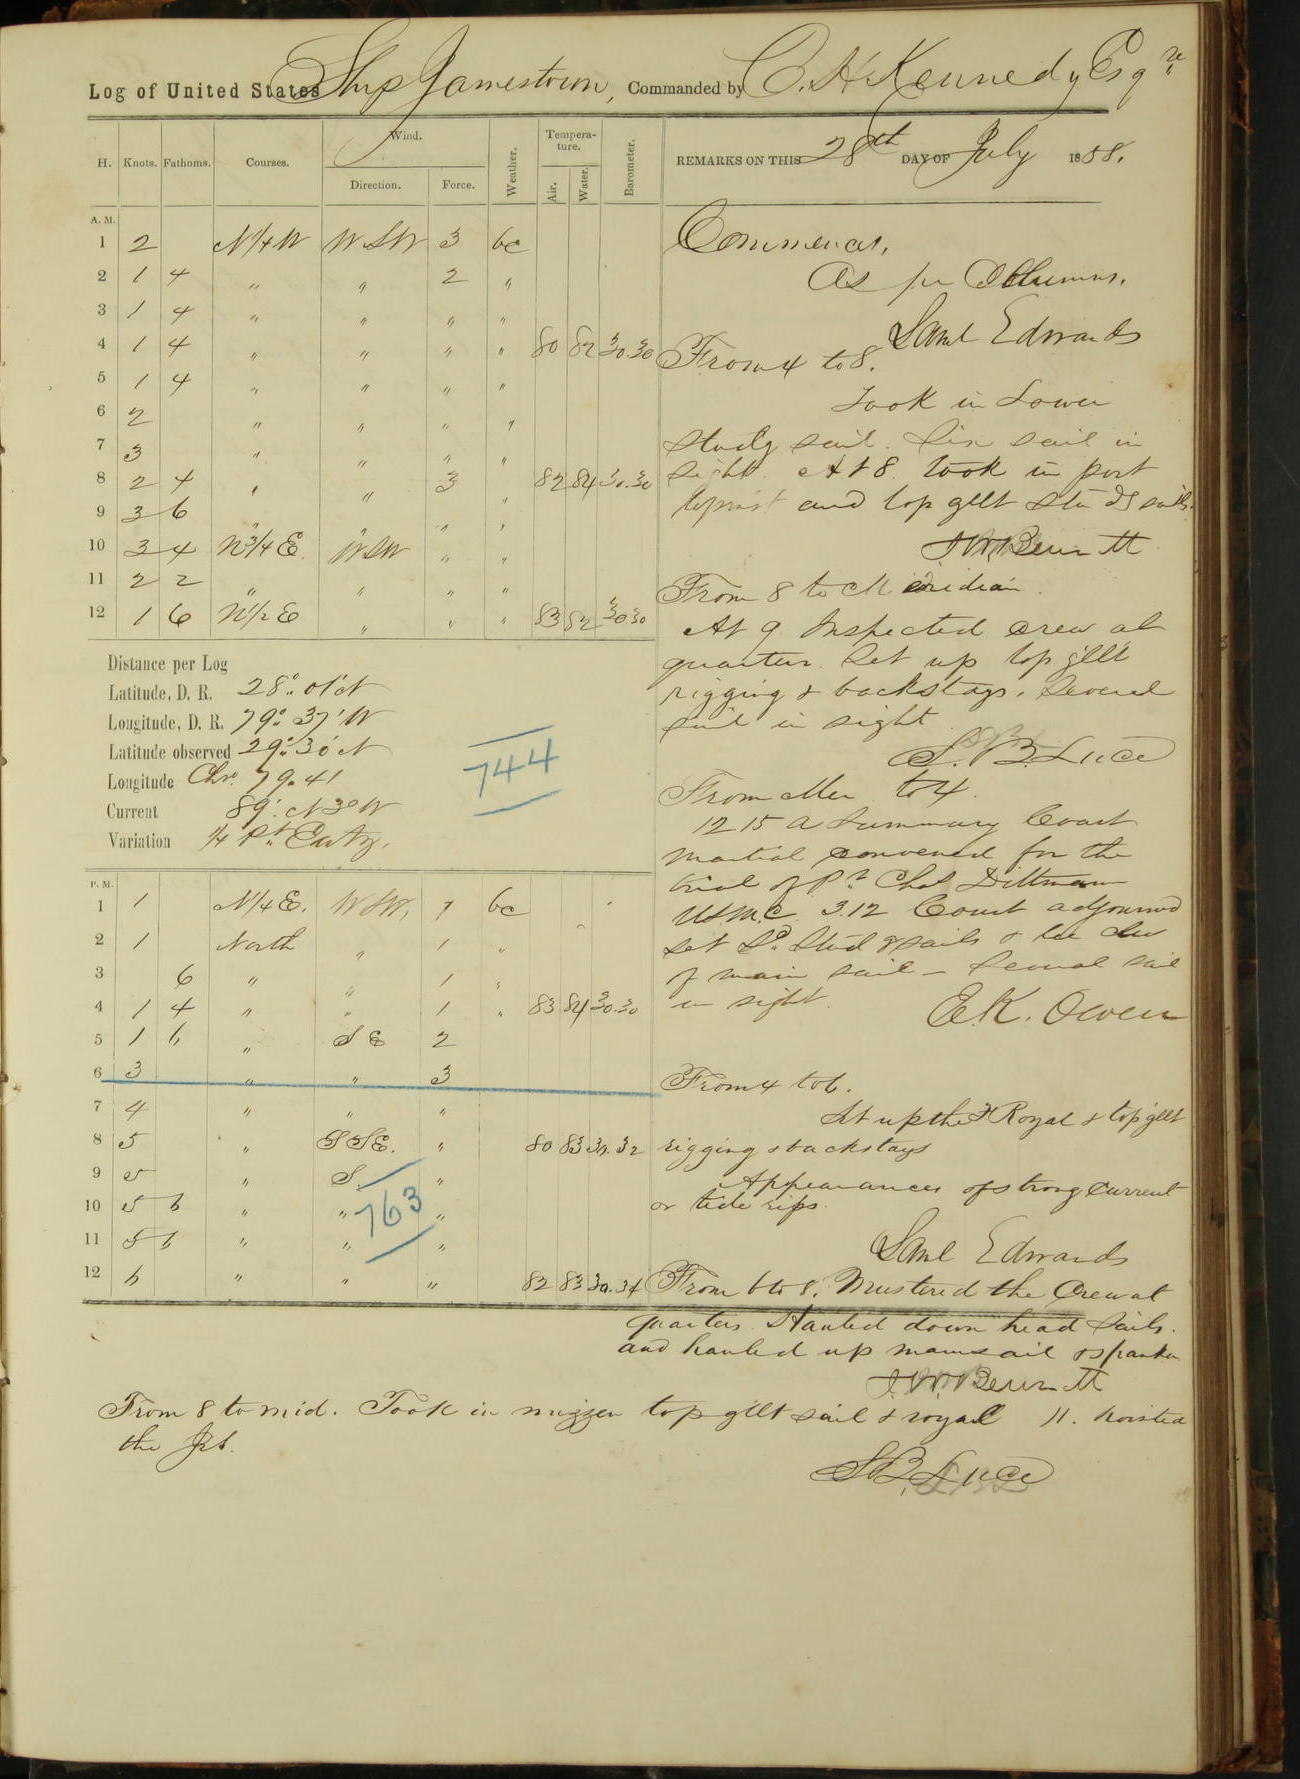 Log of United States Ship Jamestown, Commanded by C. H. Kennedy Esqre
H. Knots. Fathoms. Courses. Wind. Direction. Force. Weather. Tempera-ture. Air. Water. Barometer.
REMARKS ON THIS 28th DAY OF July 1858.
A. M.
1 2 N 1/4 W W S W 3 bc
2 1 4 " " 2 "
3 1 4 " " " "
4 1 4 " " " " 80 82 30.30
5 1 4 " " " "
6 2 " " " "
7 3 " " " "
8 2 4 " " 3 " 82 84 30.30
9 3 6 " " " "
10 3 4 N 3/4 E W S W " "
11 2 2 " " " "
12 1 6 N 1/2 E " " " 83 82 30.30
Commences,
As per Columns.
Saml Edwards
From 4 to 8.
Took in Lower
studg sail. Six sail in
sight. At 8 took in port
topmast and top gllt studg sails.
J W Bennett
From 8 to Meridian.
At 9 Inspected crew at
quarters. Set up top gllt
rigging & backstays. Several
sail in sight
S. B. Luce
Distance per Log
Latitude, D. R. 28° 01' N
Longitude, D. R. 79° 37' W
Latitude observed 29° 30' N
Longitude Chro. 79. 41
Current 89'. N 3° W
Variation 1/4 Pt. Easty.
744
From Mer. to 4.
12 15 a Summary Court
Martial convened for the
trial of Pt. Chas Dittmann
U.S.M.C. 3.12 Court adjourned
set Sd. Stud gsails & lee clew
of main sail – Several sail
in sight.
E. K. Owen
P. M.
1 1 N 1/4 E. W S W, 1 bc
2 1 North " 1 "
3 6 " " 1 "
4 1 4 " " 1 " 83 84 30.30
5 1 6 " S E 2
6 3 " " 3
7 4 " " "
8 5 " S S E. " 80 83 30.32
9 5 " S. "
10 5 6 " " "
11 5 6 " " "
12 6 " " " 82 83 30.34
763
From 4 to 6.
Set up the F Royal & top gllt
rigging & backstays
Appearances of strong current
or tide rips.
Saml Edwards
From 6 to 8. Mustered the Crew at
quarters. Hauled down head sails.
and hauled up mainsail & spanker
J. W. Bennett
From 8 to mid. Took in mizzen top gllt sail & royal 11. hoisted
the Jib.
S B. Luce